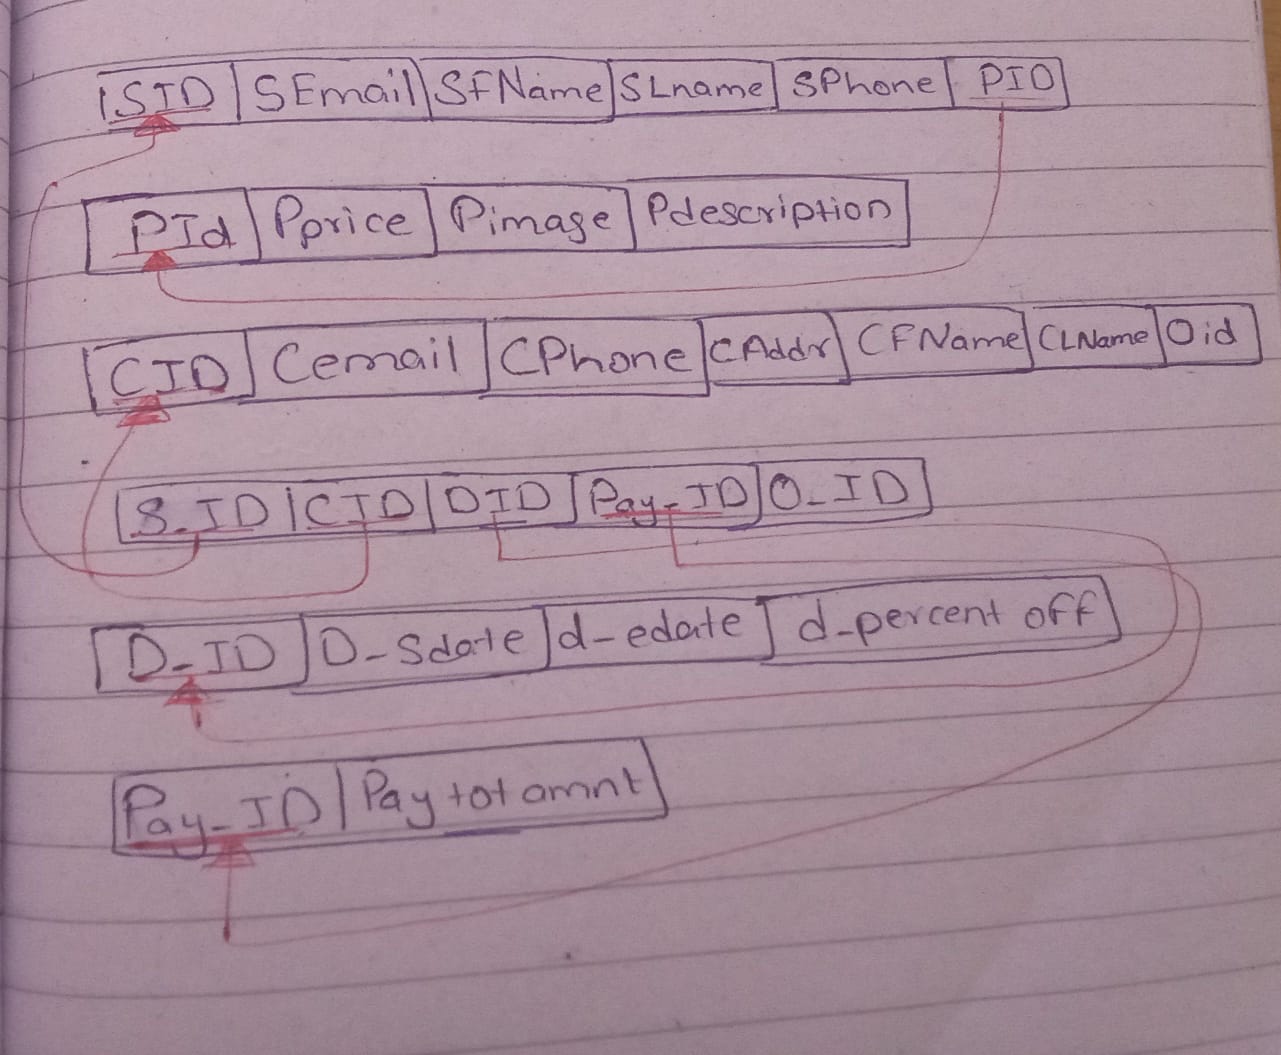 SID SEmail SFName SLname SPhone PID
PId Pprice Pimage Pdescription
CID Cemail CPhone CAddr CFName CLName Oid
S_ID CID DID Pay_ID O_ID
D_ID D_Sdate d_edate d_percent off
Pay_ID Pay tot amnt